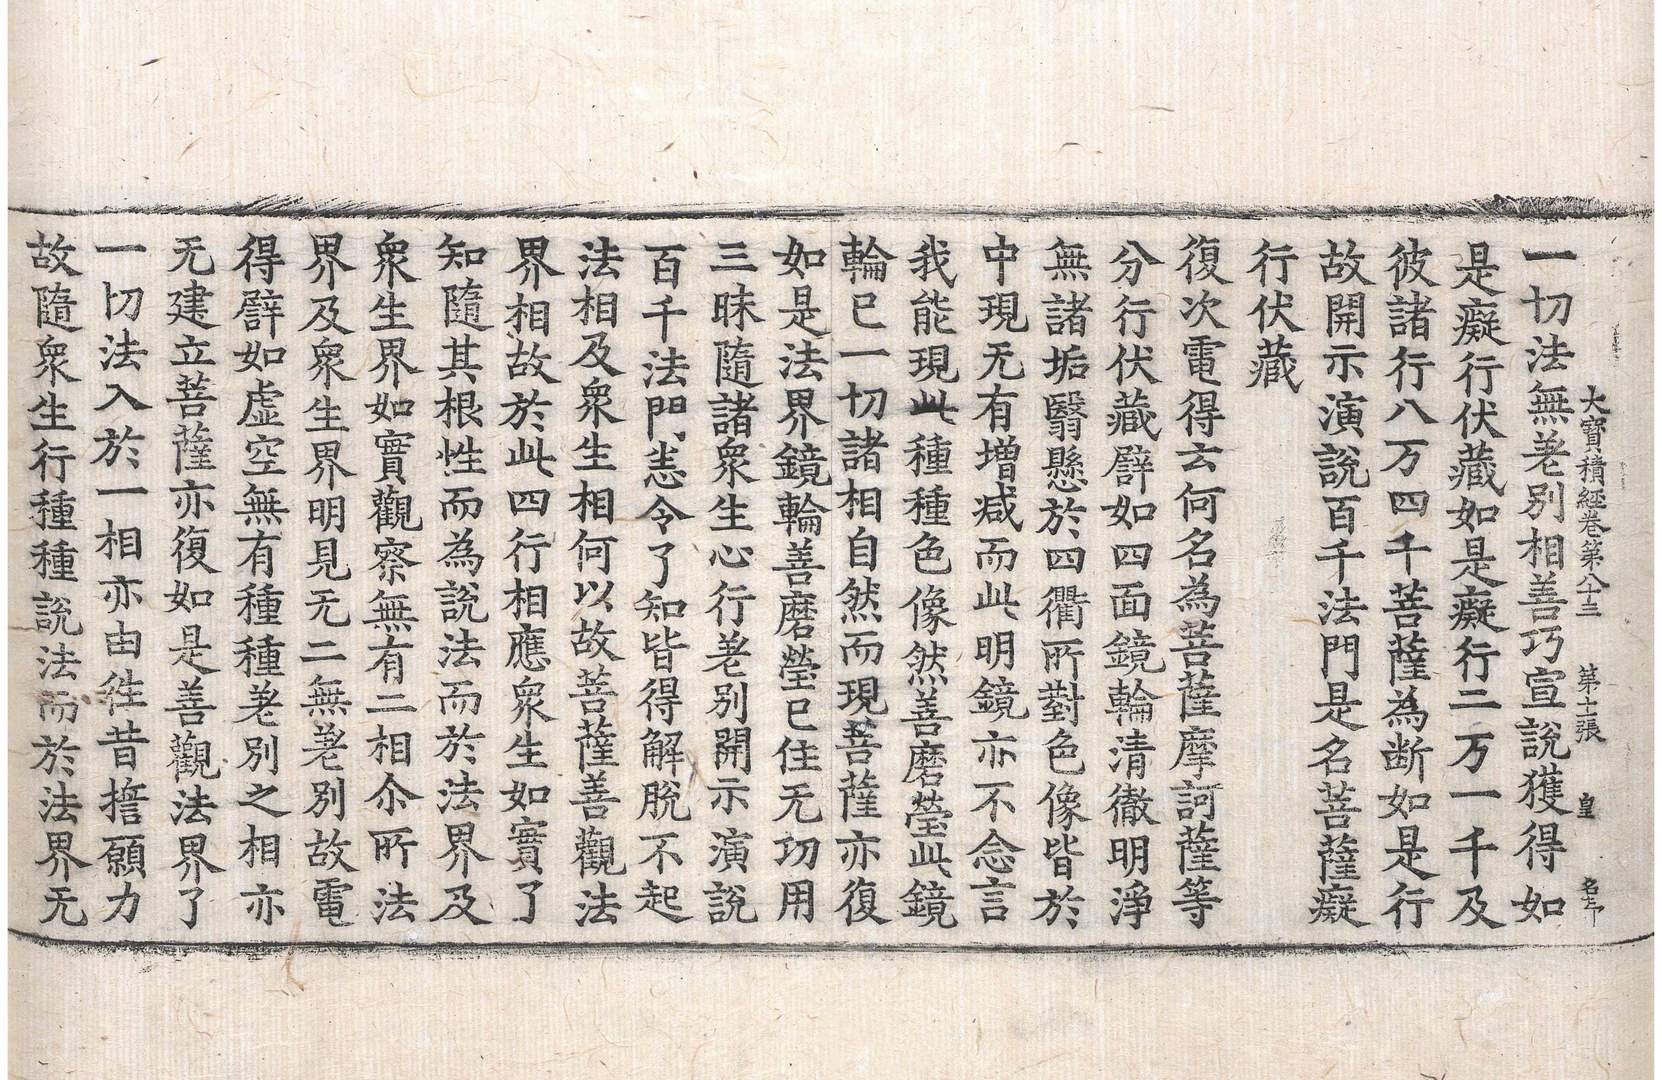 大寶積經卷第八十三 第十張 皇
一切法無差別相善巧宣說獲得如
是癡行伏藏如是癡行二万一千及
彼諸行八万四千菩薩為断如是行
故開示演說百千法門是名菩薩癡
行伏藏
復次電得云何名為菩薩摩訶薩等
分行伏藏譬如四面鏡輪清徹明淨
無諸垢翳懸於四衢所對色像皆於
中現无有增减而此明鏡亦不念言
我能現此種種色像然善磨瑩此鏡
輪已一切諸相自然而現菩薩亦復
如是法界鏡輪善磨瑩已住无功用
三昧隨諸衆生心行差別開示演說
百千法門悉令了知皆得解脫不起
法相及衆生相何以故菩薩善觀法
界相故於此四行相應衆生如實了
知隨其根性而為說法而於法界及
衆生界如實觀察無有二相尒所法
界及衆生界明見无二無差別故電
得譬如虛空無有種種差別之相亦
无建立菩薩亦復如是善觀法界了
一切法入於一相亦由往昔誓願力
故隨衆生行種種說法而於法界无